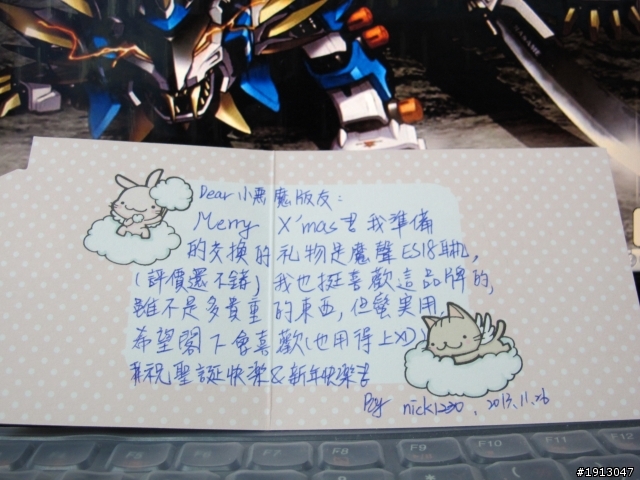 Dear 小惡魔版友:
Merry X'mas 我準備
的交換的礼物是魔聲 ES18耳机,
(評價還不錯) 我也挺喜歡這品牌的,
雖不是多貴重的東西,但蠻実用,
希望閣下會喜歡(也用得上XD)
恭祝聖誕快樂&新年快樂
By nick1230. 2013.11.26
F7
F8
F9
F10
F11
F12
#1913047